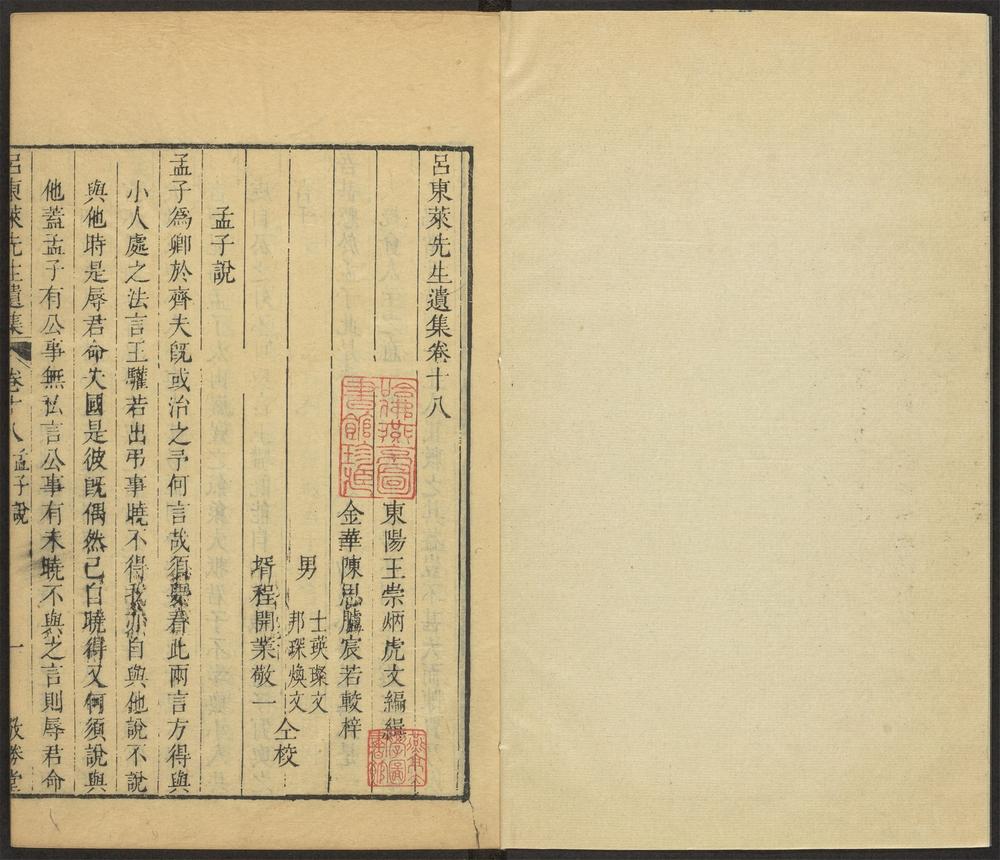 呂東萊先生遺集卷十八
東陽王崇炳虎文編緝
金華陳思臚宸若較梓
男
士瑛璨文
邦琛煥文
仝校
壻程開業敬一
孟子說
孟子爲卿於齊夫旣或治之予何言哉須要看此兩言方得與
小人處之法言王驩若出弔事曉不得我亦自與他說不說
與他時是辱君命失國是彼旣偶然已自曉得又何須說與
他蓋孟子有公事無私言公事有未曉不與之言則辱君命
呂東萊先生遺集
卷十八
孟子說
一
敬勝堂
哈佛燕京圖書館珍藏